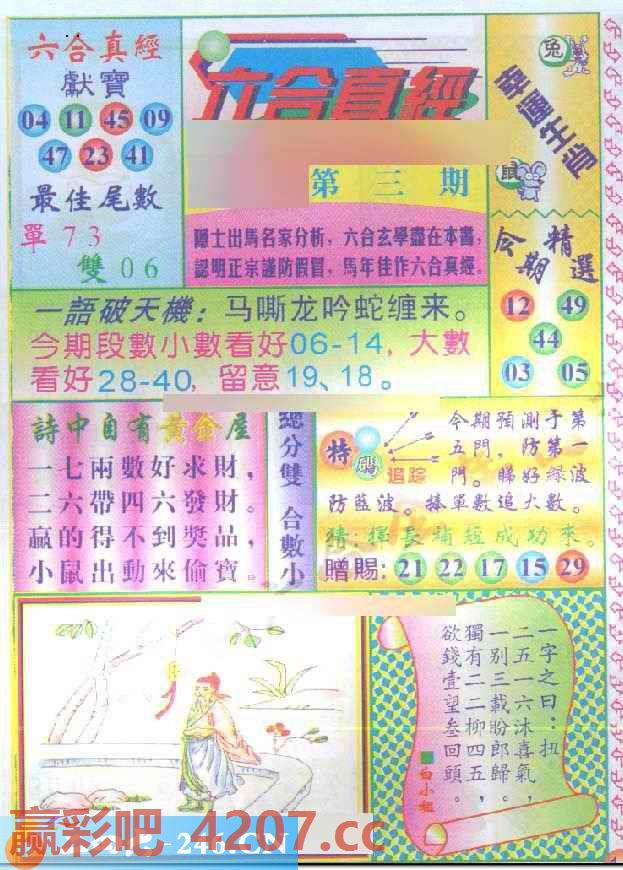 六合真經
獻寶
04 11 45 09
47 23 41
最佳尾數
單 7 3
雙 0 6
六合真經
第三期
隱士出馬名家分析，六合玄學盡在本書，
認明正宗謹防假冒，馬年佳作六合真經。
兔
幸運生肖
鼠
今期精選
12 49
44
03 05
一語破天機：马嘶龙吟蛇缠来。
今期段數小數看好06-14，大數
看好28-40，留意19、18。
詩中自有黃金屋
一七兩數好求財，
二六帶四六發財。
贏的得不到獎品，
小鼠出動來偷寶。
總分雙 合數小
特碼
追踪
今期預測于第
五門，防第一
門。睇好綠波
防藍波。捧單數追大數。
猜：揮長補短成功來。
贈賜：21 22 17 15 29
一字之曰：扭
二五一六沐喜氣，
一别三載盼郎歸。
獨有二二柳四五，
欲錢壹望叁回頭。
白小姐
赢彩吧 4207.cc